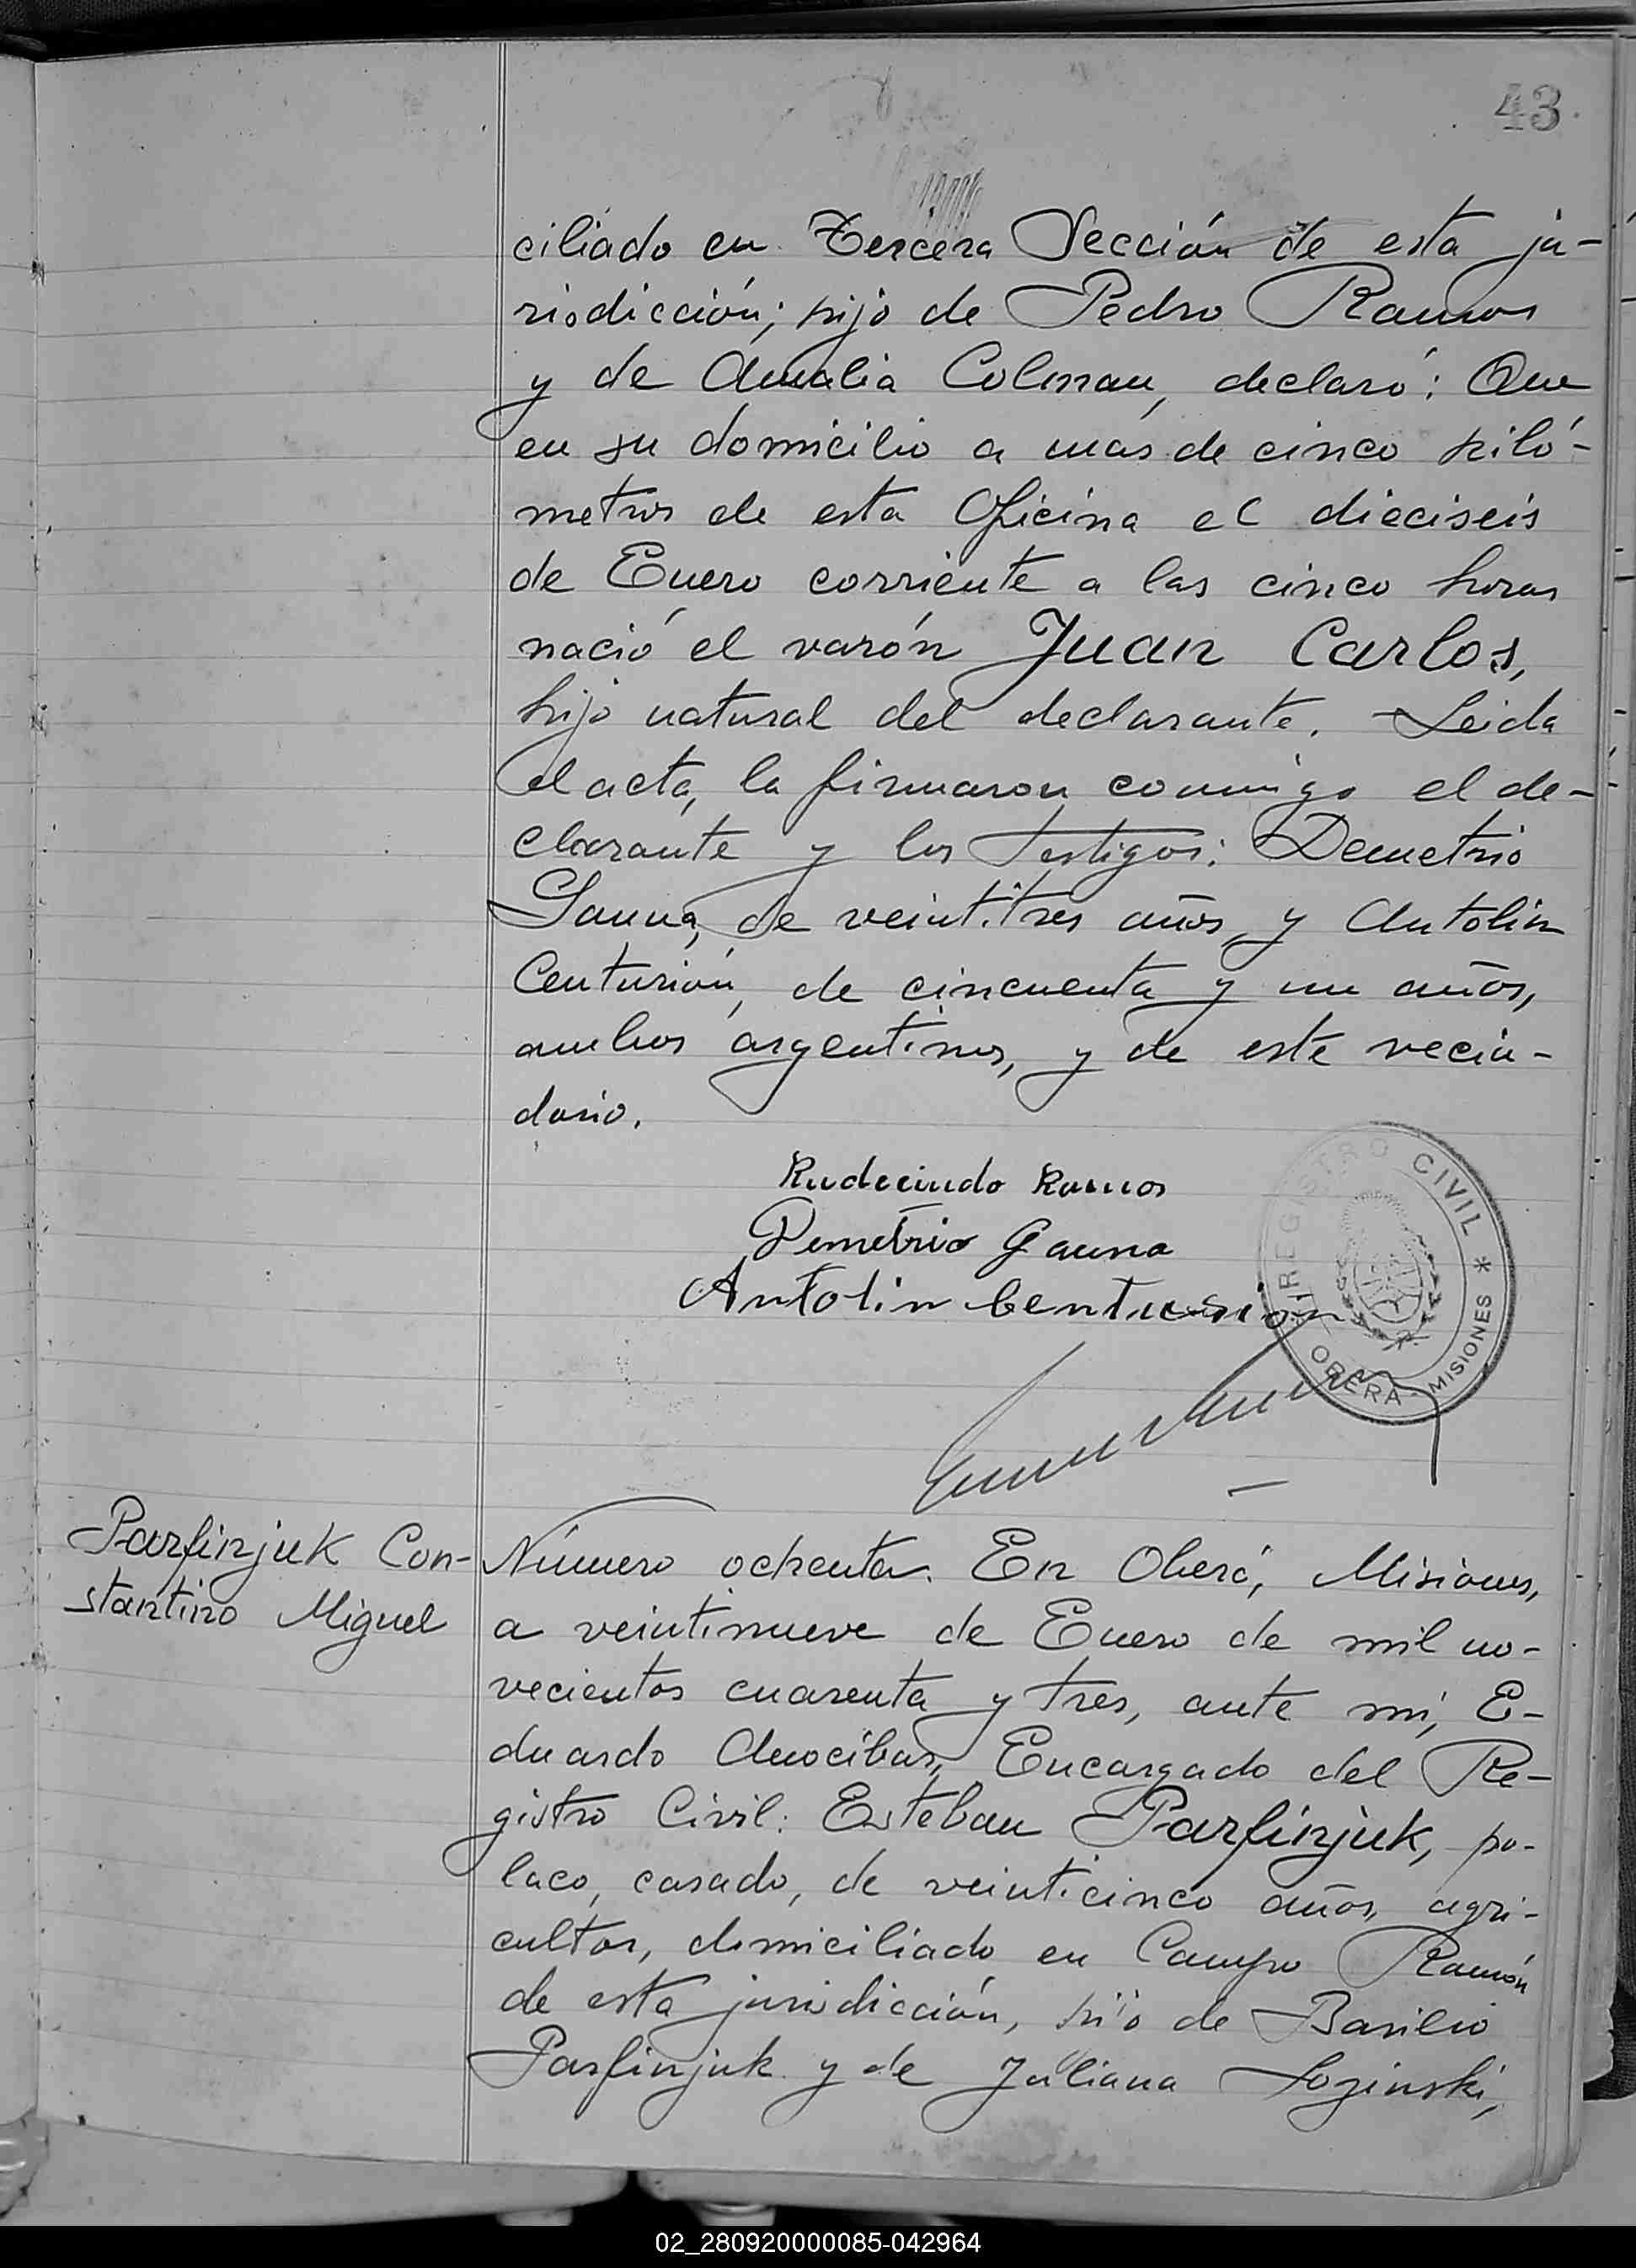 43
ciliado en Tercera Sección de esta ju-
risdicción; hijo de Pedro Ramos
y de Amalia Colman, declaró: Que
en su domicilio a mas de cinco kiló-
metros de esta Oficina el dieciseis
de Enero corriente a las cinco horas
nació el varón Juan Carlos,
hijo natural del declarante. Leida
el acta, la firmaron conmigo el de-
clarante y los testigos: Demetrio
Gauna, de veintitres años, y Antolin
Centurión, de cincuenta y un años,
ambos argentinos, y de este vecin-
dario.
Rudecindo Ramos
Demetrio Gauna
Antolin Centurion
REGISTRO CIVIL * OBERA - MISIONES *
Parfinjuk Con-
stantino Miguel
Número ochenta. En Oberá, Misiones,
a veintinueve de Enero de mil no-
vecientos cuarenta y tres, ante mi, E-
duardo Anocibar, Encargado del Re-
gistro Civil: Esteban Parfinjuk, po-
laco, casado, de veinticinco años, agri-
cultor, domiciliado en Campo Ramón
de esta jurisdicción, hijo de Basilio
Parfinjuk y de Juliana Lozinski,
02_280920000085-042964